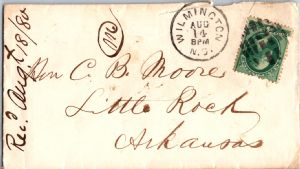 WILMINGTON
AUG
14
8PM
N.C.
Hon C. B. Moore
Little Rock
Arkansas
Rec.d Aug 18/80